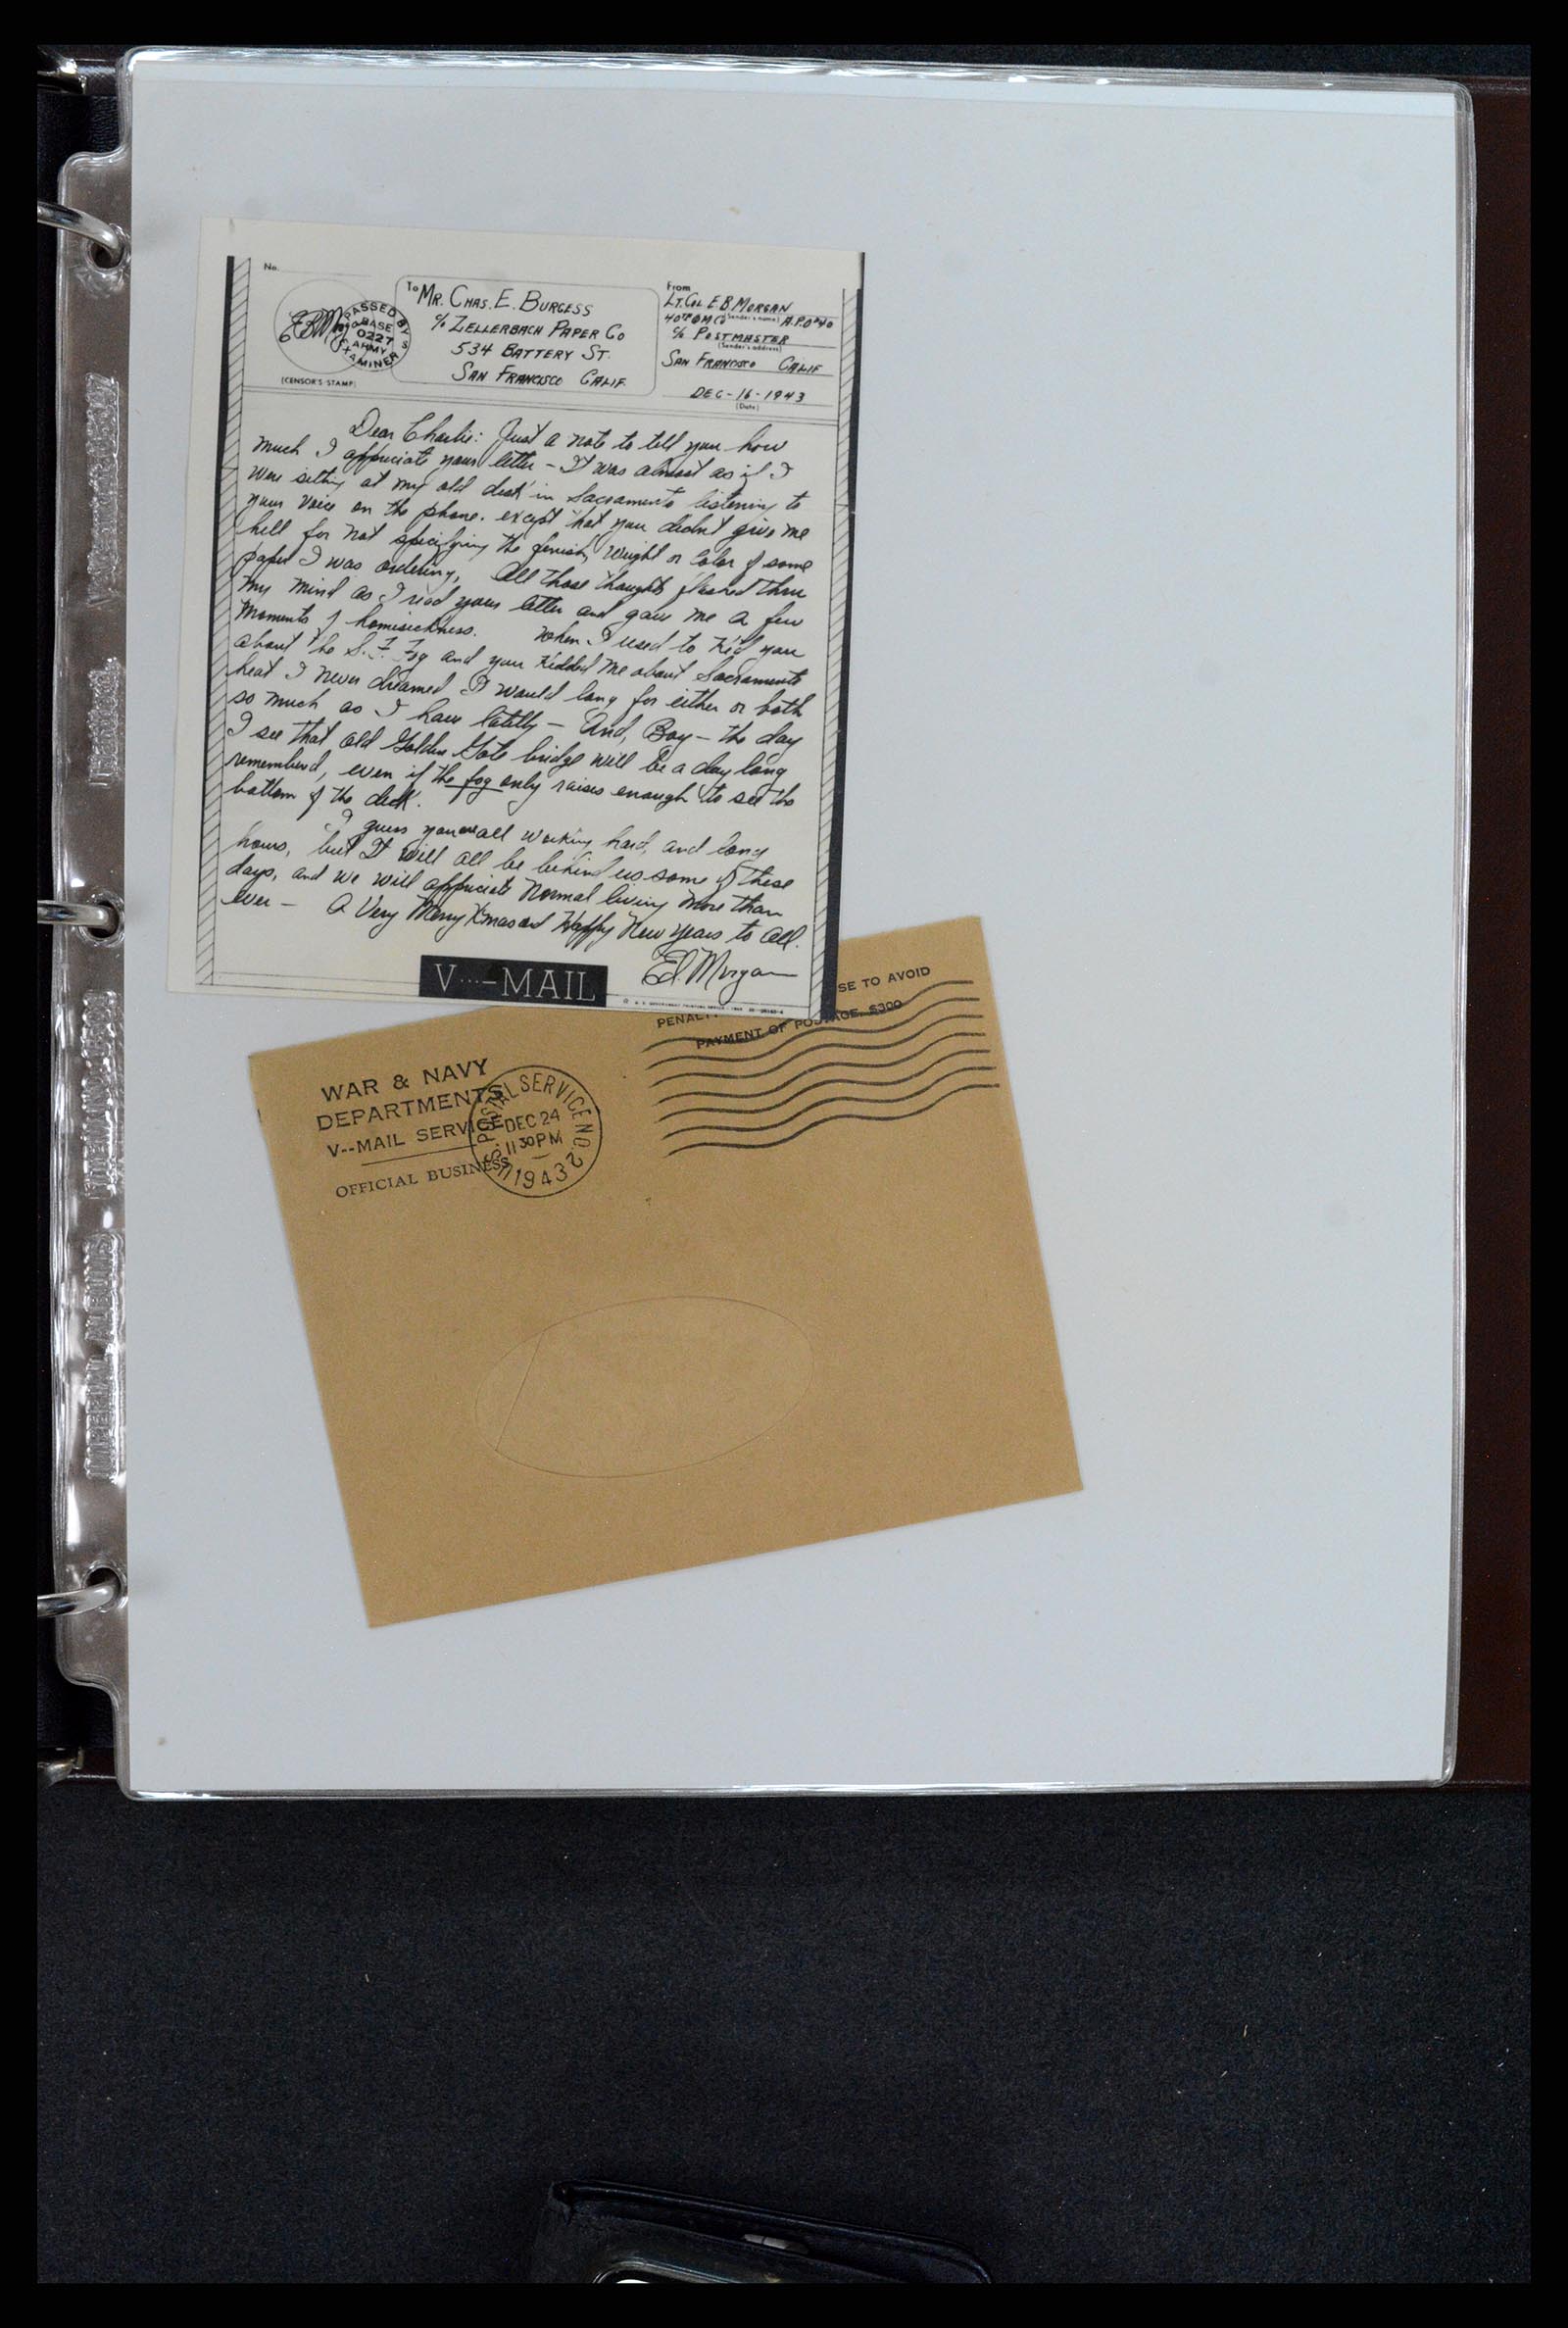 No.
PASSED BY
BASE
0227
ARMY
EXAMINER
(CENSOR'S STAMP)
To
MR. CHAS. E. BURGESS
c/o ZELLERBACH PAPER CO
534 BATTERY ST.
SAN FRANCISCO CALIF.
From
LT. COL E.B. MORGAN
(Sender's name)
40TH QM CO A.P.O #40
c/o POSTMASTER
(Sender's address)
SAN FRANCISCO CALIF
DEC-16-1943
(Date)
Dear Charlie: Just a note to tell you how
much I appreciate your letter - It was almost as if I
were sitting at my old desk in Sacramento listening to
your voice on the phone. except that you didnt give me
hell for not specifying the finish, weight or color of some
paper I was ordering. All those thoughts flashed thru
my mind as I read your letter and gave me a few
moments of homesickness. When I used to kid you
about the S.F. Fog and you kidded me about Sacramento
heat I never dreamed I would long for either or both
so much as I have lately - And, Boy - the day
I see that old Golden Gate bridge will be a day long
remembered, even if the fog only raises enough to see the
bottom of the deck.
I guess you are all working hard, and long
hours, but It will all be behind us some of these
days, and we will appreciate normal living more than
ever - A Very Merry Xmas and Happy New years to all.
Ed. Morgan
V···-MAIL
SE TO AVOID
PENAL
PAYMENT OF POSTAGE, $300
WAR & NAVY
DEPARTMENTS
V--MAIL SERVICE
OFFICIAL BUSINESS
U.S. POSTAL SERVICE NO. 2
DEC 24
11 30 PM
1943
IMPERIAL ALBUMS